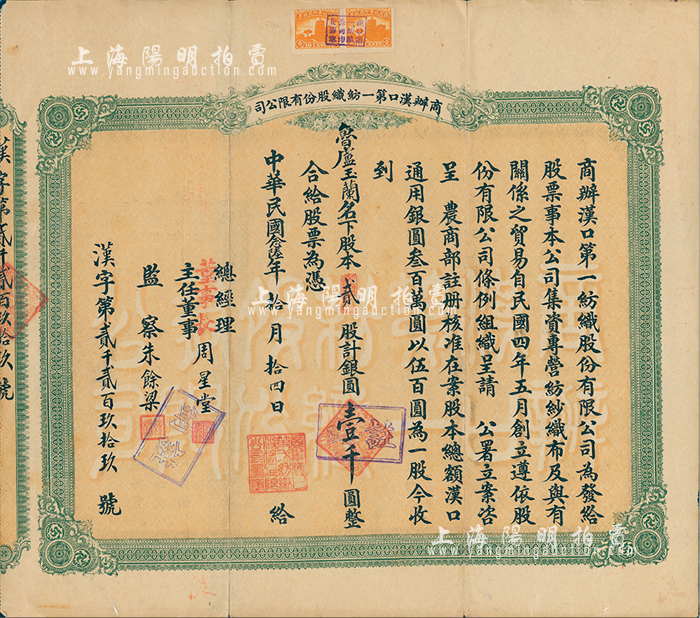 上海陽明拍賣
www.yangmingauction.com
司公限有份股織紡一第口漢辦商
商辦漢口第一紡織股份有限公司為發給
股票事本公司集資專營紡紗織布及與有
關係之貿易自民國四年五月創立遵依股
份有限公司條例組織呈請 公署立案咨
呈 農商部註册核准在案股本總額漢口
通用銀圓叁百萬圓以伍百圓為一股今收
到
魯廬玉蘭名下股本貳股計銀圓壹千圓整
合給股票為憑
中華民國 年拾月拾四日 給
總經理
董事長
主任董事 周星堂
監察 朱餘梁
漢字第貳千貳百玖拾玖號
漢字第貳千貳百玖拾玖號
上海陽明拍賣
www.yangmingauction.com
上海陽明拍賣
www.yangmingauction.com